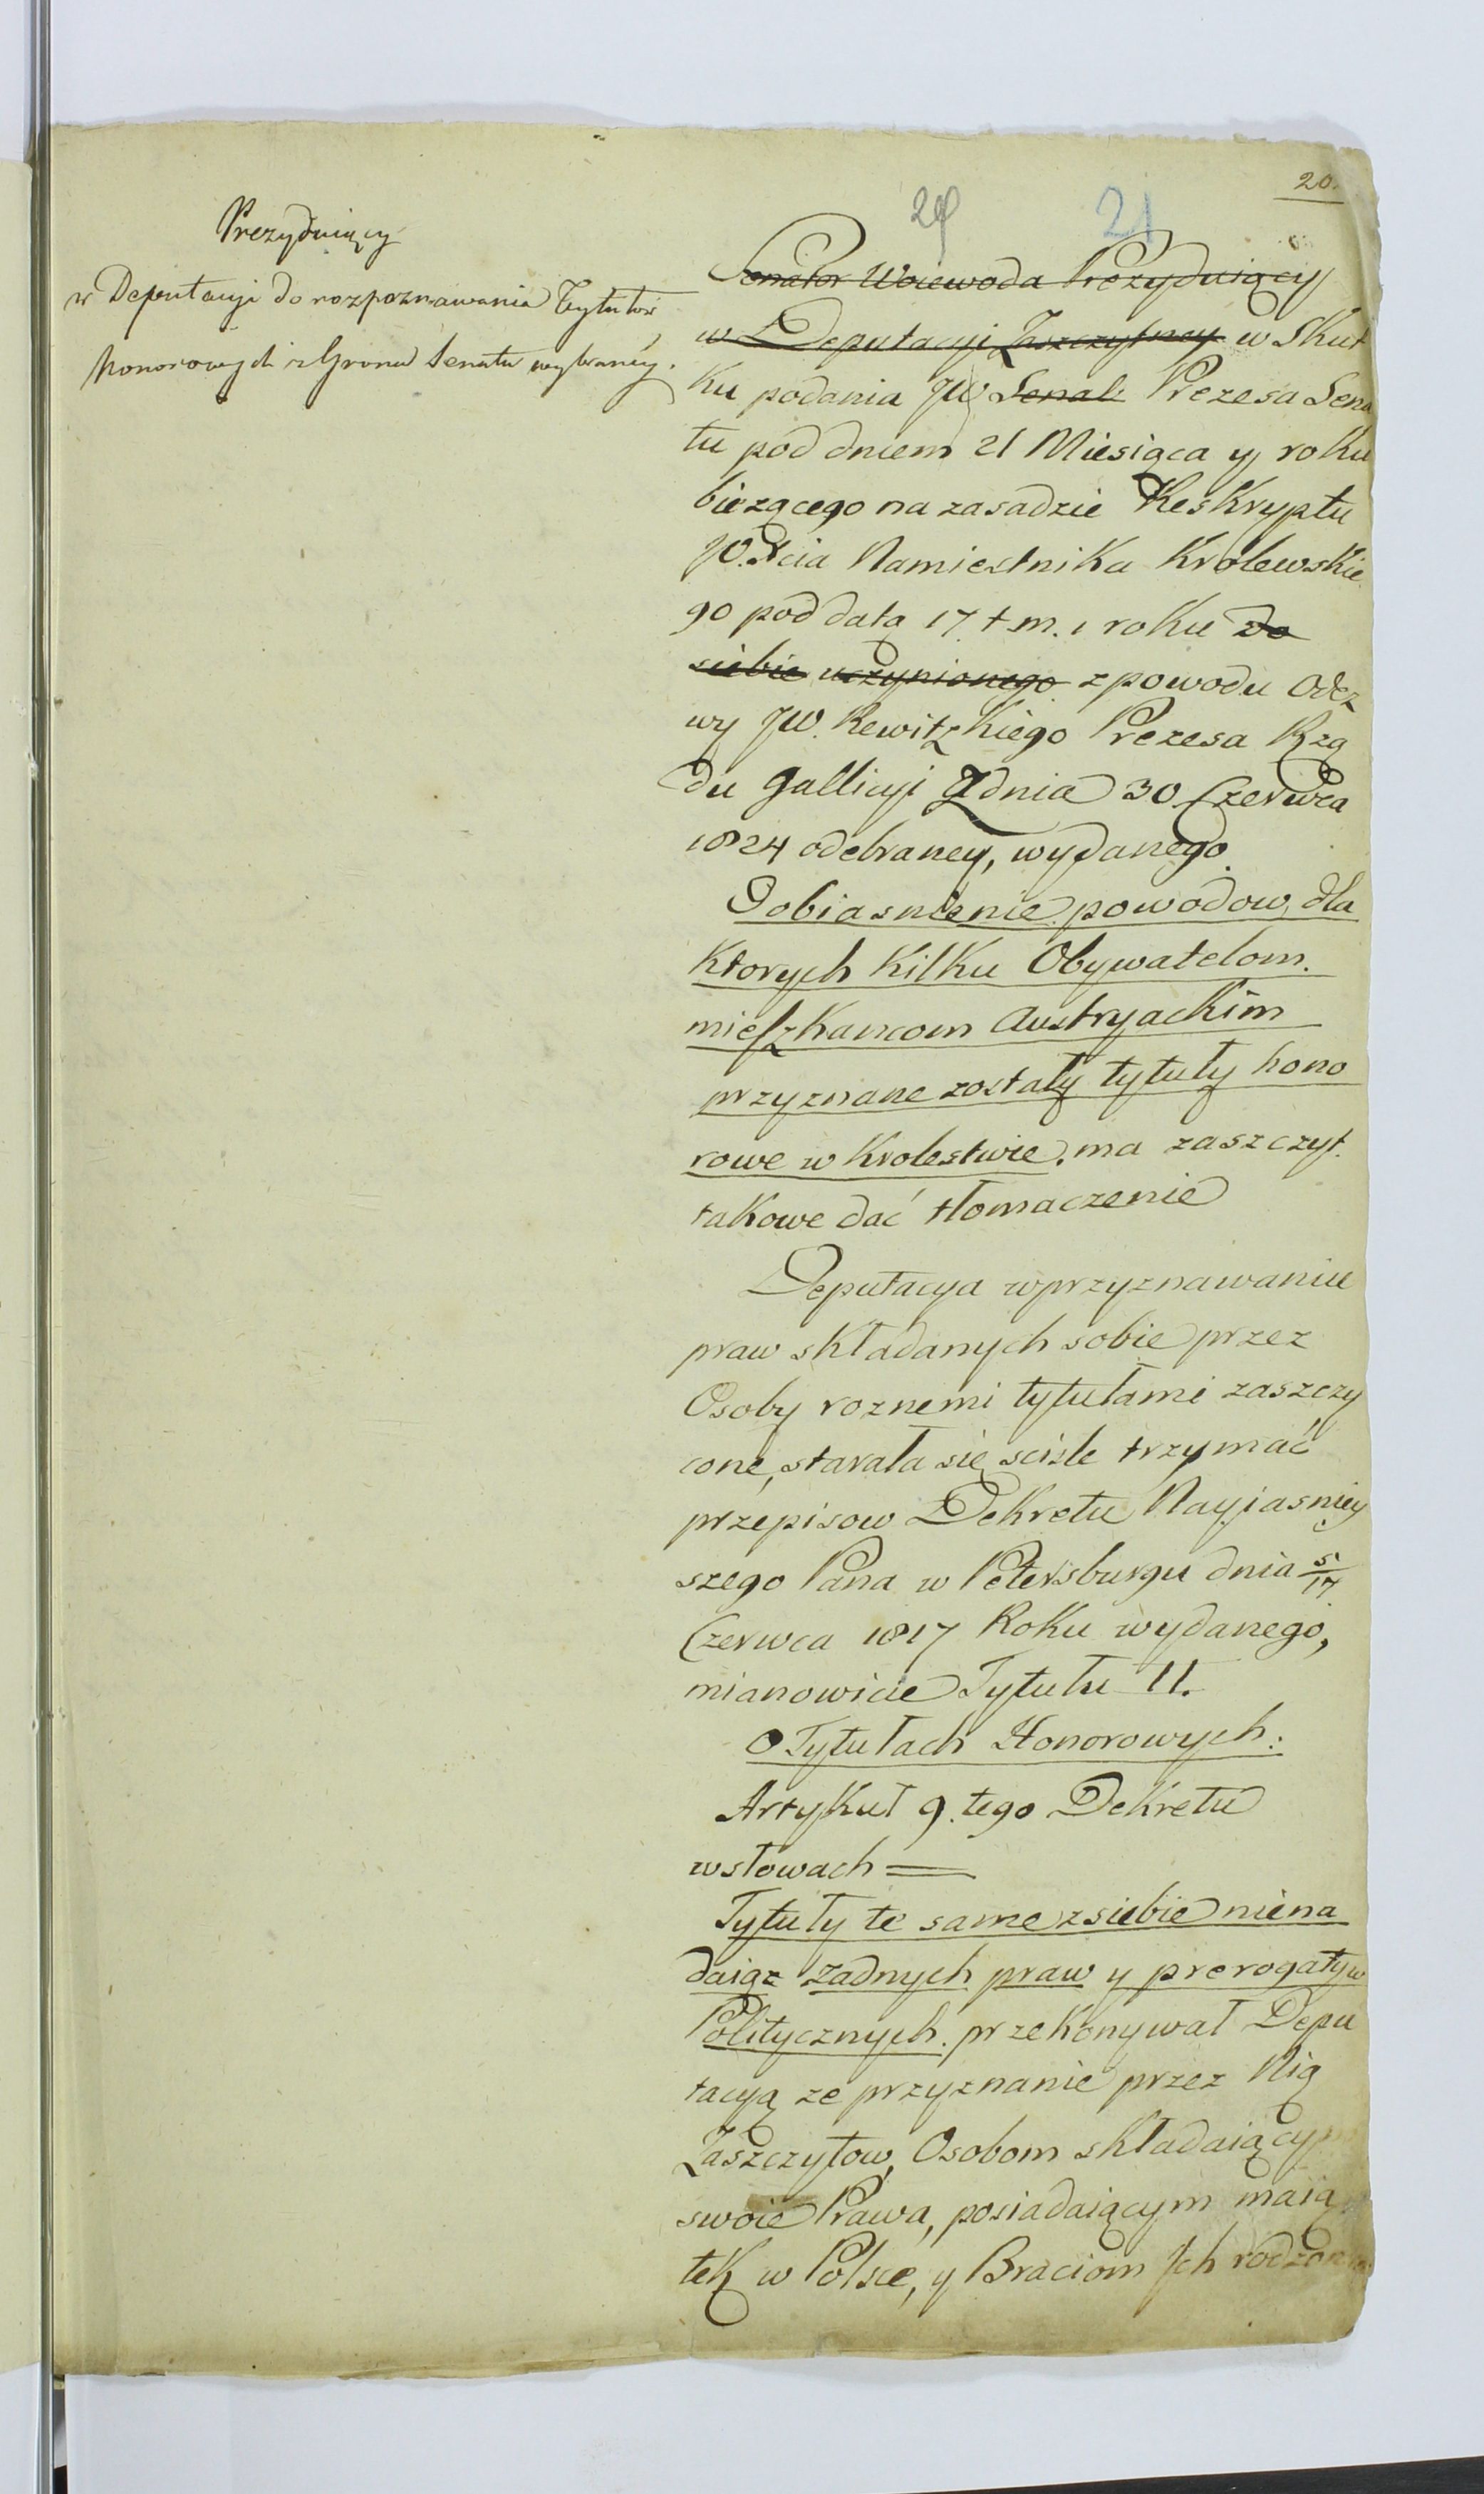 20.
21
Prezyduiący
w Deputacyi do rozpoznawania Tytułów
Honorowych z Grona Senatu wybraney.
Senator Woiewoda Prezyduiący
w Deputacyi Zaszczytney w Skut
ku podania JW Senat: Prezesa Sena
tu pod dniem 21 Miesiąca y roku
bieżącego na zasadzie Reskryptu
JO. Xcia Namiestnika Krolewskie
go pod datą 17 t m. i roku do
siebie uczynionego z powodu Odez
wy JW. Rewitzkiego Prezesa Rzą
du Gallicyi Zdnia 30 Czerwca
1824 odebraney, wydanego
Obiasnienie powodow, dla
ktorych kilku Obywatelom.
mieszkancom Austryackim
przyznane zostały tytuły hono
rowe w Krolestwie. ma zaszczyt.
takowe dać tłomaczenie
Deputacya w przyznawaniu
praw składanych sobie przez
Osoby roznemi tytułami zaszczy
cone, starała się scisle trzymać
przepisow Dekretu Nayiasniey
szego Pana w Petersburgu dnia 5/17
Czerwca 1817 Roku wydanego,
mianowicie Tytułu II.
O Tytułach Honorowych:
Artykuł 9. tego Dekretu
w słowach =
Tytuły te same z siebie niena
daiąc żadnych praw y prerogatyw
Politycznych. przekonywał Depu
tacyą ze przyznanie przez Nią
Zaszczytow, Osobom składaiącym
swoie Prawa, posiadaiącym maią
tek w Polsce, y Braciom Ich